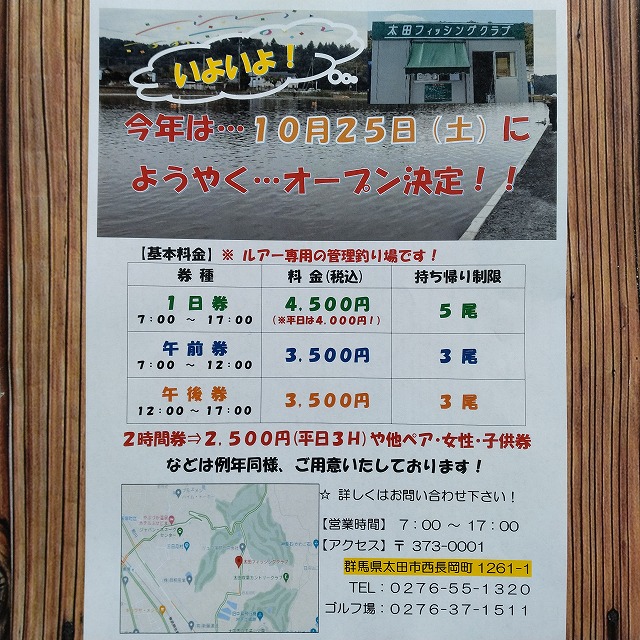 太田フィッシングクラブ
いよいよ！
今年は…１０月２５日（土）に
ようやく…オープン決定！！
【基本料金】※ ルアー専用の管理釣り場です！
券 種 料 金(税込) 持ち帰り制限
１日券 4,500円 5 尾
7：00 ～ 17：00 (※平日は4,000円！)
午前券 3,500円 3 尾
7：00 ～ 12：00
午後券 3,500円 3 尾
12：00 ～ 17：00
２時間券⇒2,500円(平日３H)や他ペア・女性・子供券
などは例年同様、ご用意いたしております！
☆ 詳しくはお問い合わせ下さい！
【営業時間】 7：00 ～ 17：00
【アクセス】〒 373-0001
群馬県太田市西長岡町 1261-1
TEL：0276-55-1320
ゴルフ場：0276-37-1511
太田フィッシングクラブ